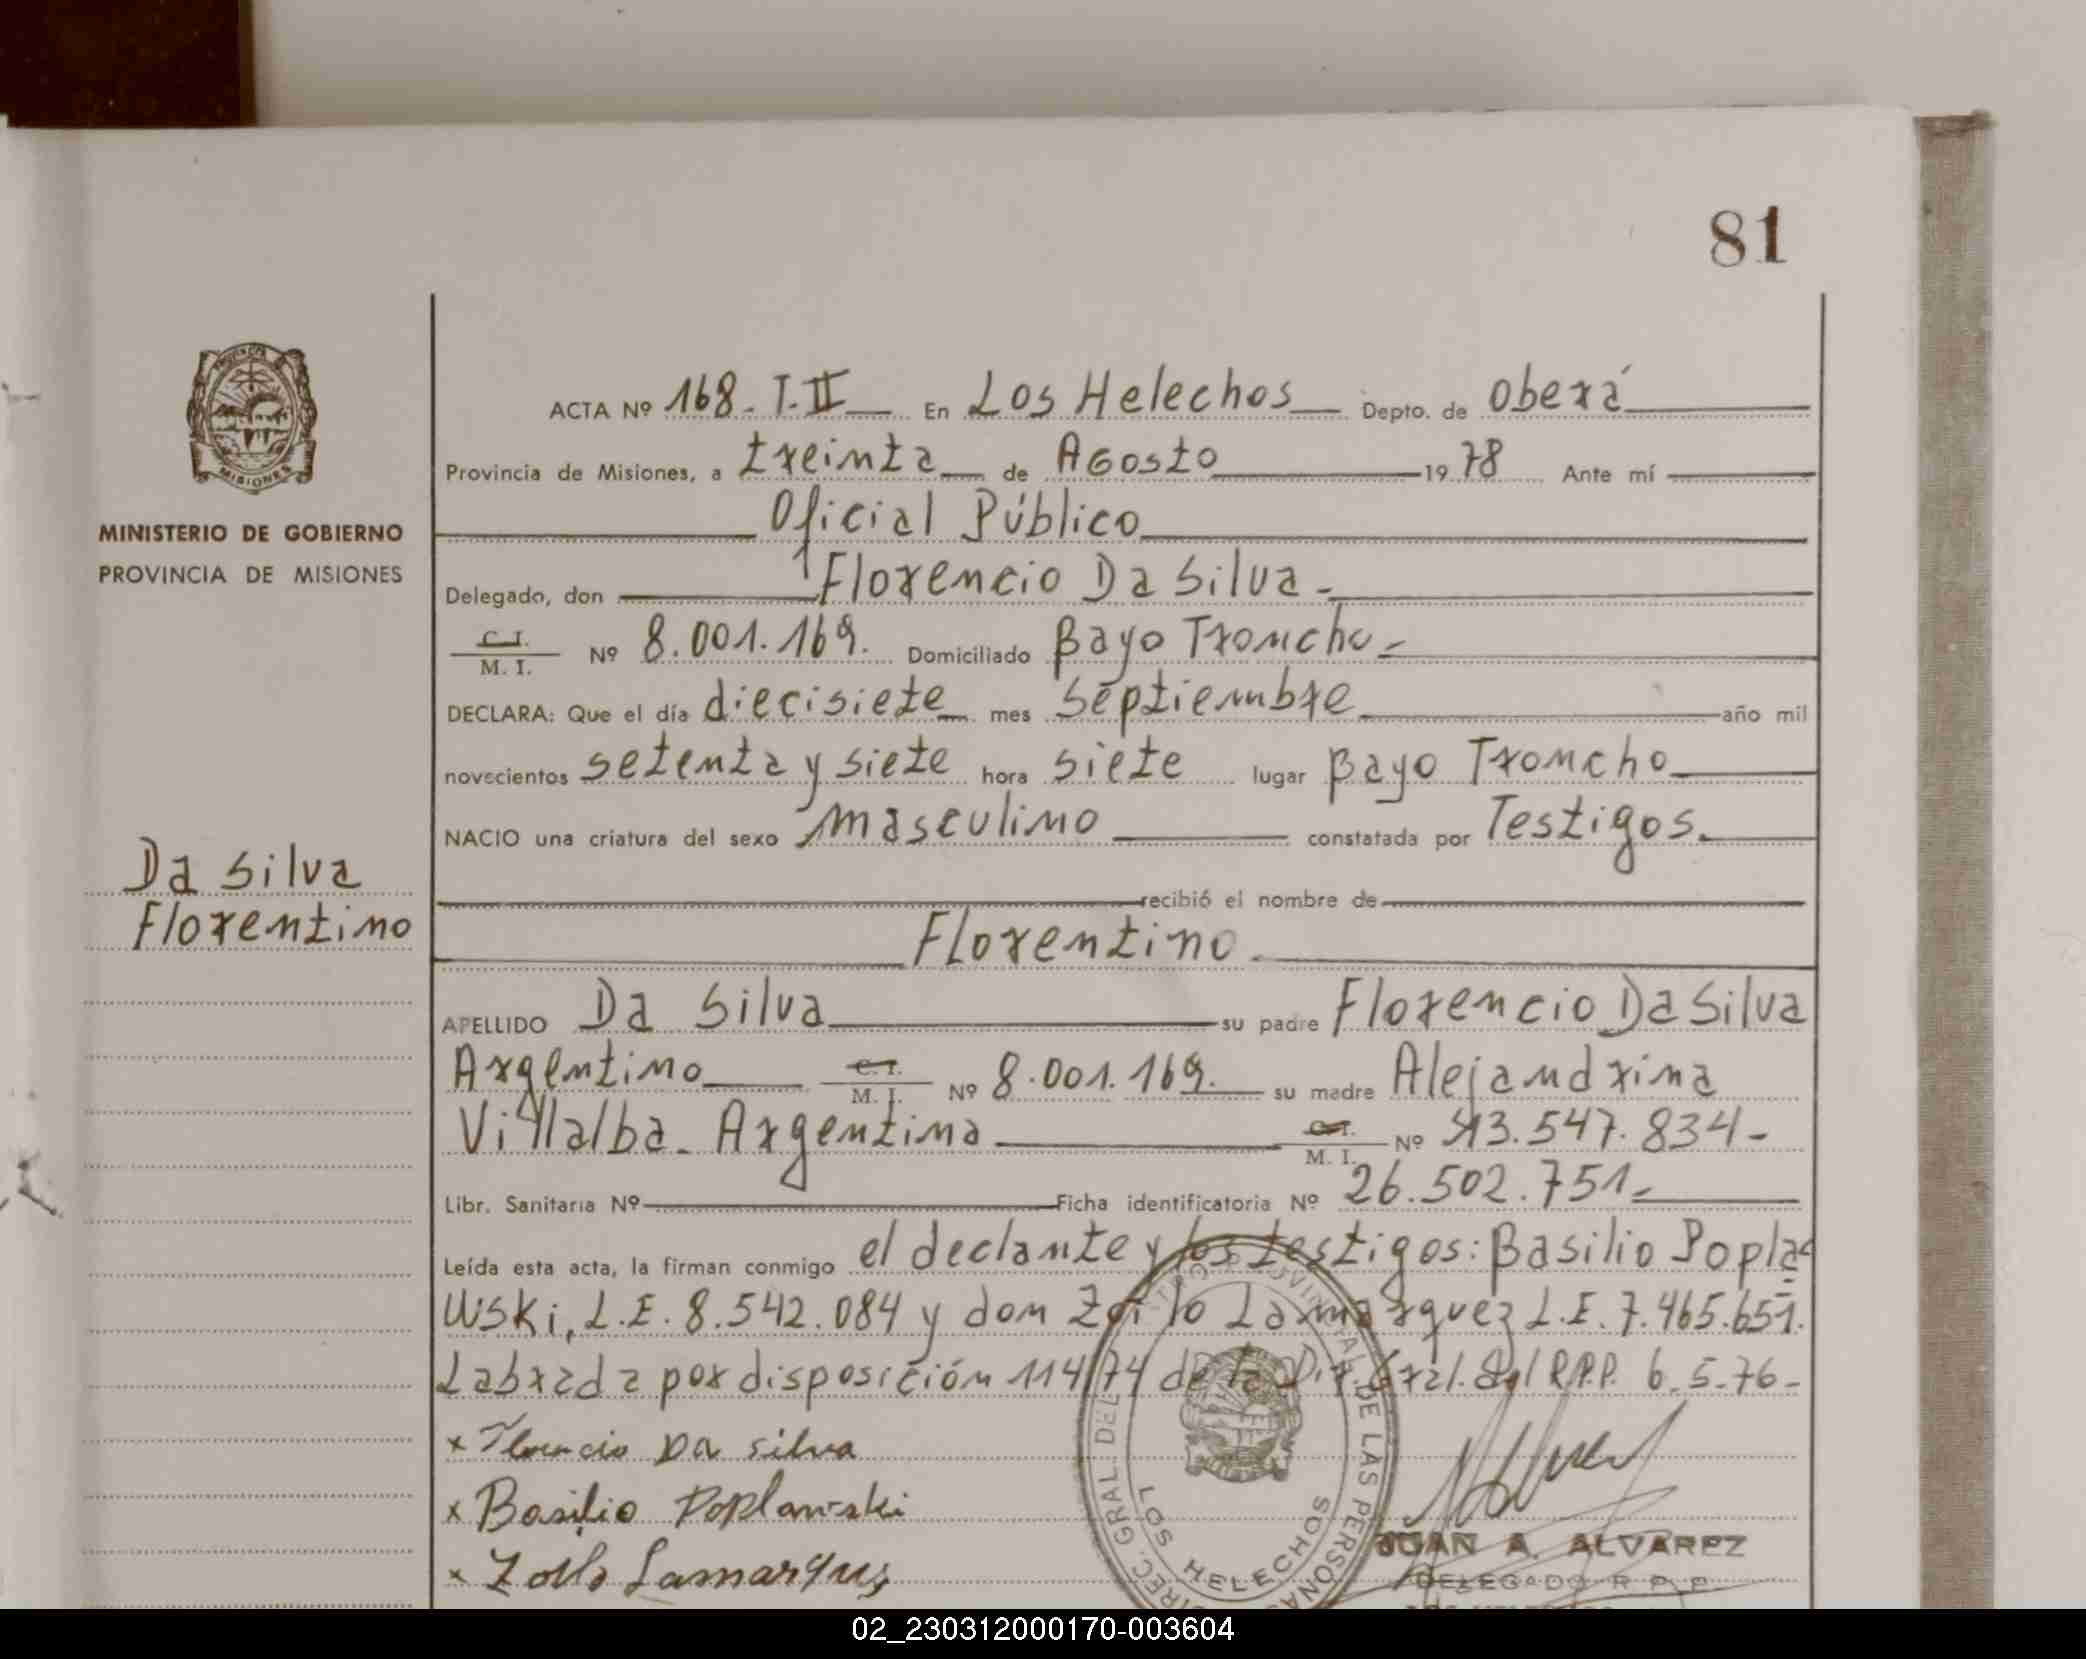 81
ACTA Nº 168. T.II En Los Helechos Depto. de Oberá
Provincia de Misiones, a treinta de Agosto 1978 Ante mí
Oficial Público
MINISTERIO DE GOBIERNO
PROVINCIA DE MISIONES
Delegado, don Florencio Da Silva.
C.I. M.I. Nº 8.001.169. Domiciliado Bayo Troncho
DECLARA: Que el día diecisiete mes septiembre año mil
novecientos setenta y siete hora siete lugar Bayo Troncho
NACIO una criatura del sexo masculino constatada por Testigos.
Da Silva
Florentino
recibió el nombre de
Florentino
APELLIDO Da Silva su padre Florencio Da Silva
Argentino C.I. M.I. Nº 8.001.169. su madre Alejandrina
Villalba. Argentina C.I. M.I. Nº 13.547.834-
Libr. Sanitaria Nº Ficha identificatoria Nº 26.502.751-
Leída esta acta, la firman conmigo el declante y los testigos: Basilio Popla=
wski, L.E. 8.542.084 y don Zoilo Lamarquez L.E. 7.465.651.
Labrada por disposición 114/74 de la Dir. Gral. del R.P.P. 6.5-76-
x Florencio Da silva
x Basilio Poplawski
x Zoilo Lamarques
DIREC. GRAL DEL REGISTRO PROVINCIAL DE LAS PERSONAS
LOS HELECHOS
JUAN A. ALVAREZ
DELEGADO R. P. P.
02_230312000170-003604